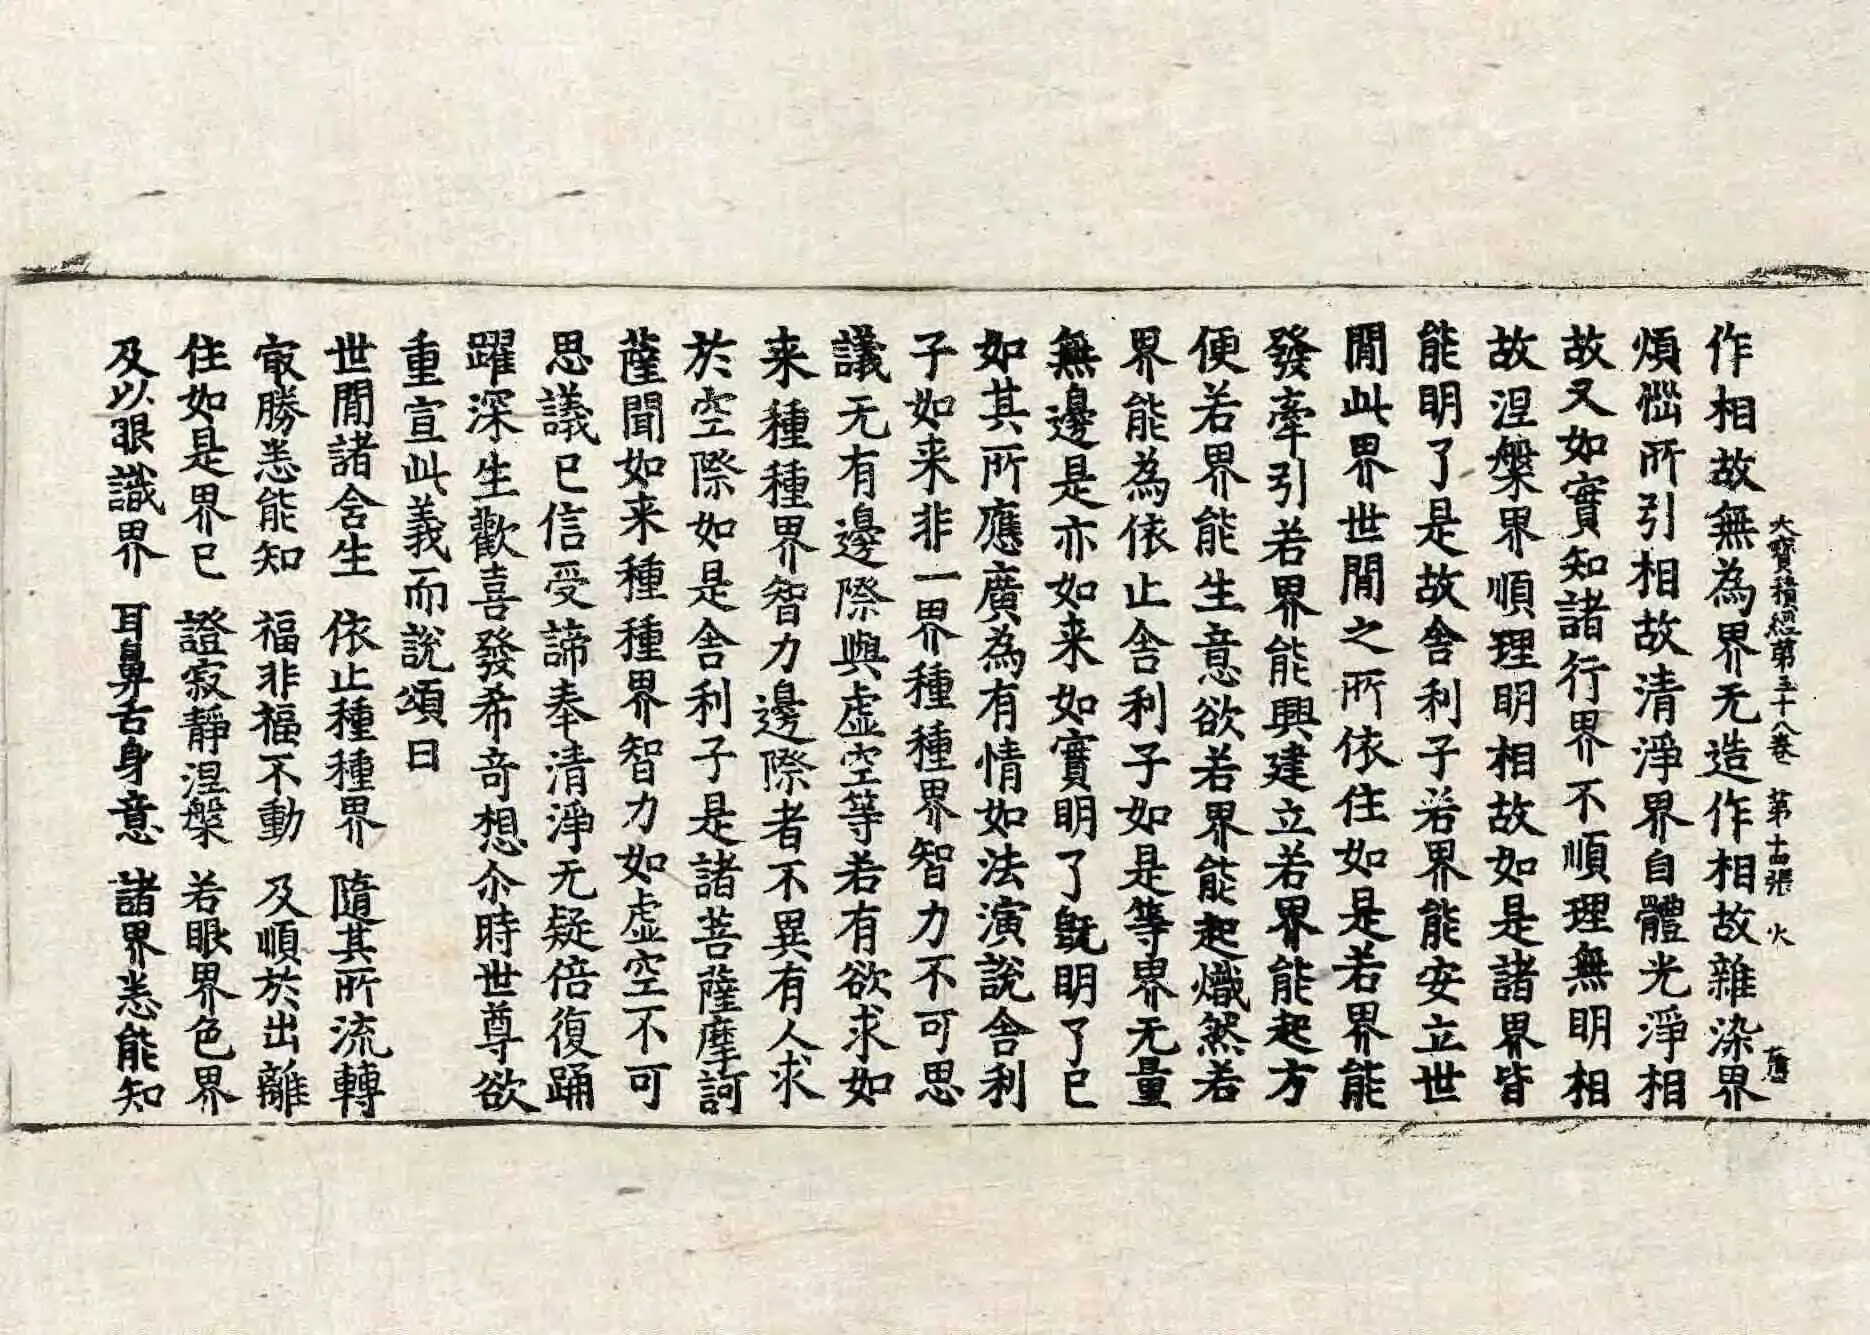 大寶積經第三十八卷 第十四張 火
作相故無為界无造作相故雜染界
煩惱所引相故清淨界自體光淨相
故又如實知諸行界不順理無明相
故涅槃界順理明相故如是諸界皆
能明了是故舍利子若界能安立世
間此界世間之所依住如是若界能
發牽引若界能興建立若界能起方
便若界能生意欲若界能起熾然若
界能為依止舍利子如是等界无量
無邊是亦如来如實明了旣明了已
如其所應廣為有情如法演說舍利
子如来非一界種種界智力不可思
議无有邊際與虛空等若有欲求如
来種種界智力邊際者不異有人求
於空際如是舍利子是諸菩薩摩訶
薩聞如来種種界智力如虛空不可
思議已信受諦奉清淨无疑倍復踊
躍深生歡喜發希奇想尒時世尊欲
重宣此義而說頌曰
世間諸舍生 依止種種界 隨其所流轉
㝡勝悉能知 福非福不動 及順於出離
住如是界已 證寂靜涅槃 若眼界色界
及以眼識界 耳鼻舌身意 諸界悉能知